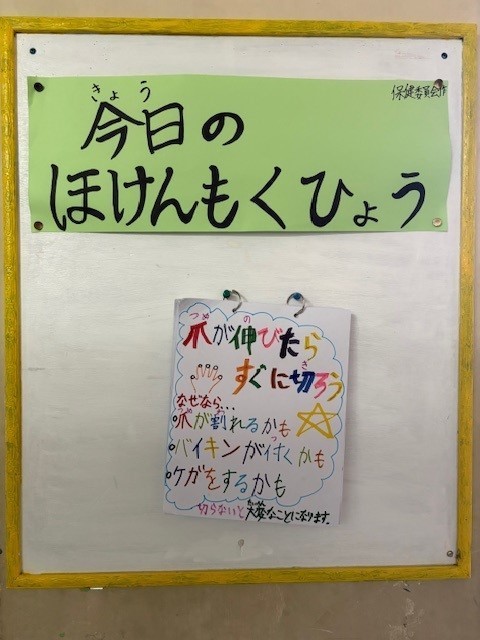 保健委員会作
きょう
今日の
ほけんもくひょう
つめ の
爪が伸びたら
き
すぐに切ろう
なぜなら...
つめ わ
爪が割れるかも
つ
バイキンが付くかも
ケガをするかも
切らないと大変なことになります。